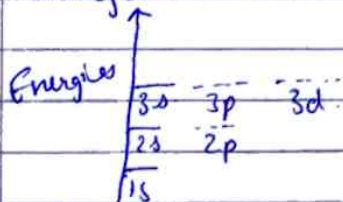 Energies
3s 3p 3d
2s 2p
1s